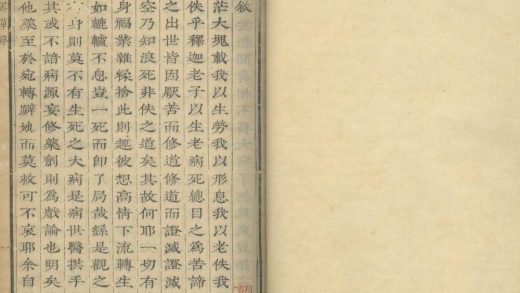 敘
茫大塊載我以生勞我以形息我以老佚我
佚乎釋迦老子以生老病死總目之為苦諦
之出世皆因厭苦而修道修道而證滅證滅
空乃知浪死非佚之道矣其故何耶一切有
身福業雜糅捨此則趣彼想高情下流轉生
如轆轤不息豈一死而即了局哉繇是觀之
身則莫不有生死之大病是病世醫拱手
其或不諳病源妄修藥劑則為戲論也明矣
他藥至於宛轉躃地而莫救可不哀耶余自